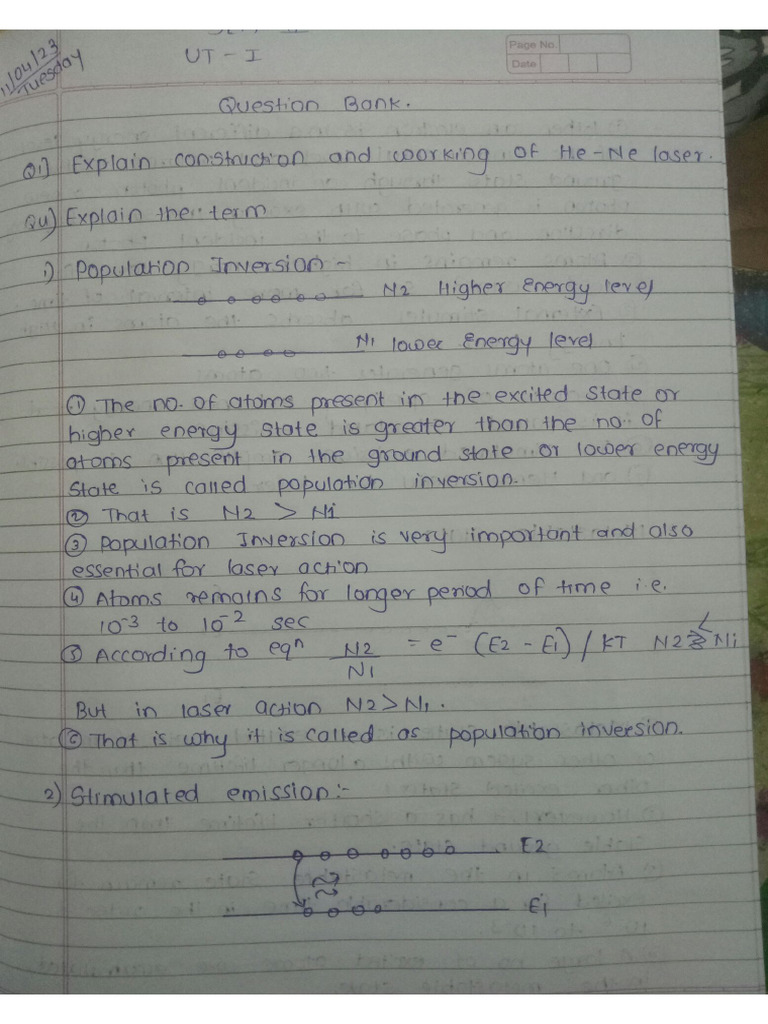 11/04/23
Tuesday
UT - I
Page No.
Date
Question Bank.
Q1] Explain construction and woorking of He-Ne laser.
Q4) Explain the term
1) Population Inversion :-
N2 Higher Energy level
N1 lower Energy level
① The no. of atoms present in the excited state or
higher energy state is greater than the no. of
atoms present in the ground state or lower energy
state is called population inversion.
② That is N2 > N1
③ Population Inversion is very important and also
essential for laser action
④ Atoms remains for longer period of time i.e.
10⁻³ to 10⁻² sec
⑤ According to eqⁿ N2/N1 = e⁻ (E2 - E1) / KT N2 < N1
But in laser action N2 > N1.
⑥ That is why it is called as population inversion.
2) Stimulated emission:-
E2
E1